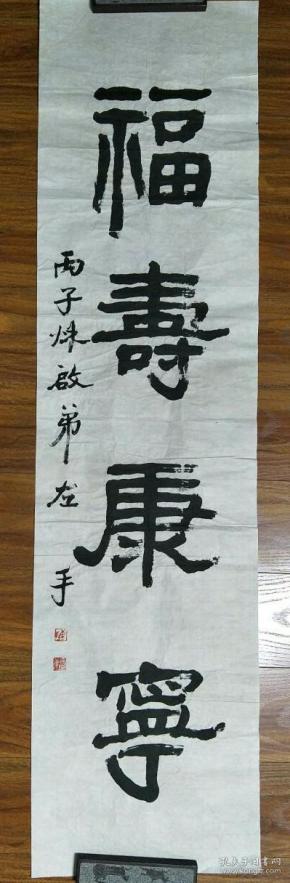 福壽康寧
丙子烁啟弟左手
孔夫子旧书网